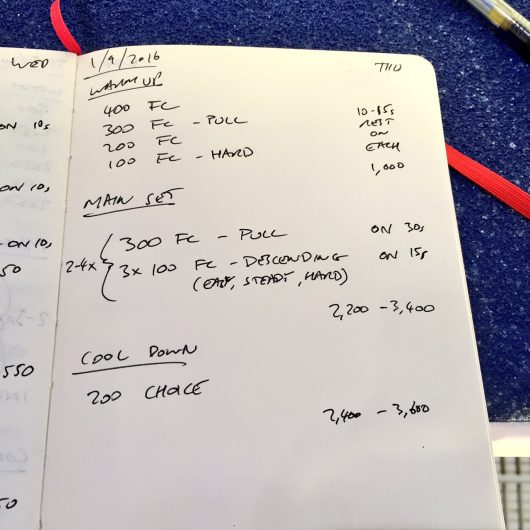 WED
ON 10s
ON 10s
ON 10s
50
550
50
1/9/2016
THU
WARM UP
400 FC
300 FC - PULL
200 FC
100 FC - HARD
10-15s
REST
ON
EACH
1,000
MAIN SET
2-4x
300 FC - PULL ON 30s
3x 100 FC - DESCENDING ON 15s
(EASY, STEADY, HARD)
2,200 - 3,400
COOL DOWN
200 CHOICE
2,400 - 3,600